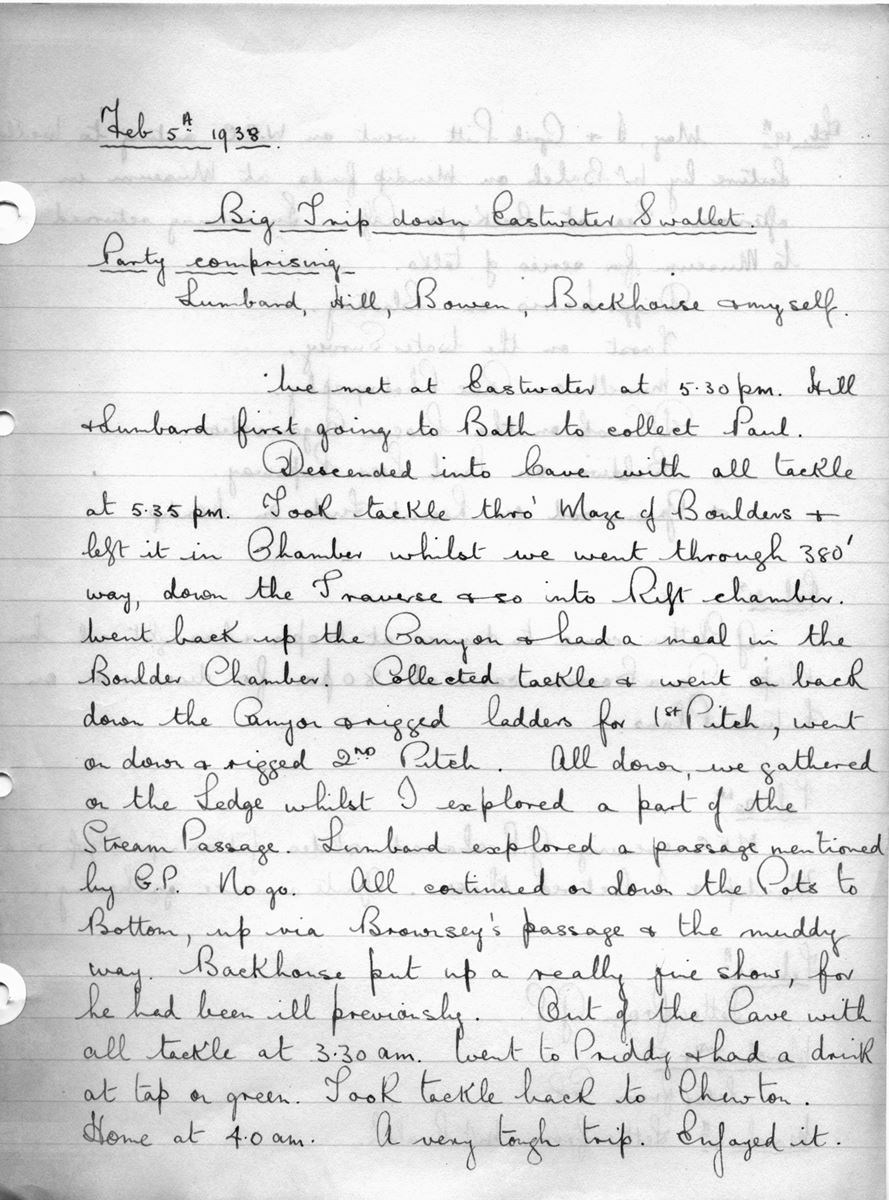 Feb 5th 1938.
Big Trip down Eastwater Swallet.
Party comprising
Lumbard, Hill, Bowen, Backhouse & myself.
We met at Eastwater at 5.30 pm. Hill
& Lumbard first going to Bath to collect Paul.
Descended into Cave with all tackle
at 5.35 pm. Took tackle thro' Maze of Boulders &
left it in Chamber whilst we went through 380'
way, down the Traverse & so into Rift chamber.
Went back up the Canyon & had a meal in the
Boulder Chamber. Collected tackle & went on back
down the Canyon & rigged ladders for 1st Pitch, went
on down & rigged 2nd Pitch. All down, we gathered
on the Ledge whilst I explored a part of the
Stream Passage. Lumbard explored a passage mentioned
by G.P. No go. All continued on down the Pots to
Bottom, up via Brownsey's passage & the muddy
way. Backhouse put up a really fine show, for
he had been ill previously. Out of the Cave with
all tackle at 3.30 am. Went to Priddy & had a drink
at tap on green. Took tackle back to Chewton.
Home at 4.0 am. A very tough trip. Enjoyed it.